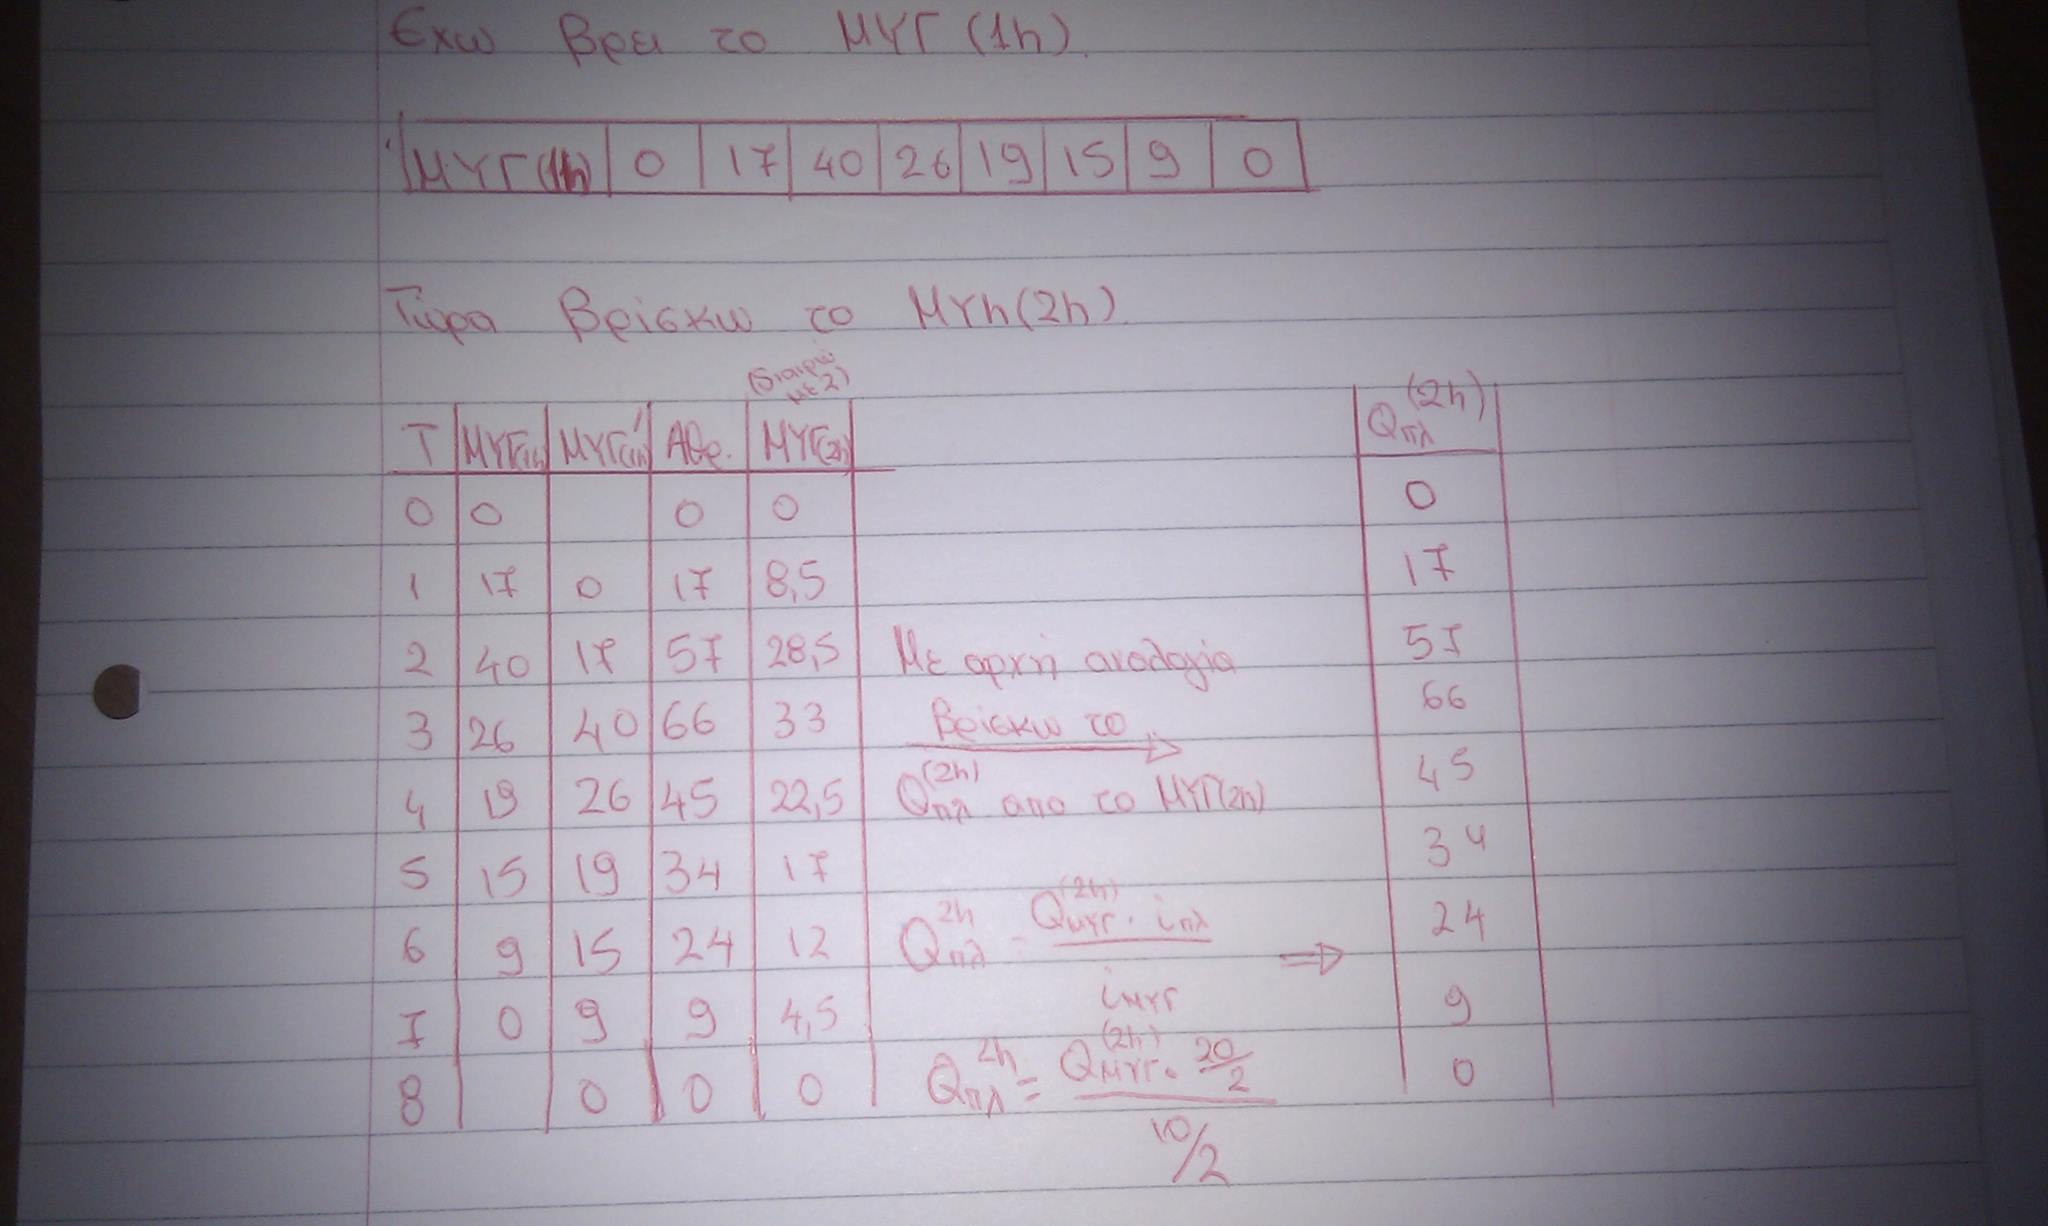 Εχω βρει το ΜΥΓ (1h).
ΜΥΓ(1h) 0 17 40 26 19 15 9 0
Τώρα βρίσκω το ΜΥh(2h)
(διαιρω με 2)
T ΜΥΓ(1h) ΜΥΓ(1h)' Αθρ. ΜΥΓ(2h)
0 0 0 0
1 17 0 17 8,5
2 40 17 57 28,5
3 26 40 66 33
4 19 26 45 22,5
5 15 19 34 17
6 9 15 24 12
7 0 9 9 4,5
8 0 0 0
Με αρχή αναλογία
βρίσκω το
Qπλ(2h) απο το ΜΥΓ(2h)
Qπλ 2h = QΜΥΓ(2h) · iπλ / iΜΥΓ ⇒
Qπλ 2h = QΜΥΓ(2h) · 20/2 / 10/2
Qπλ(2h)
0
17
57
66
45
34
24
9
0